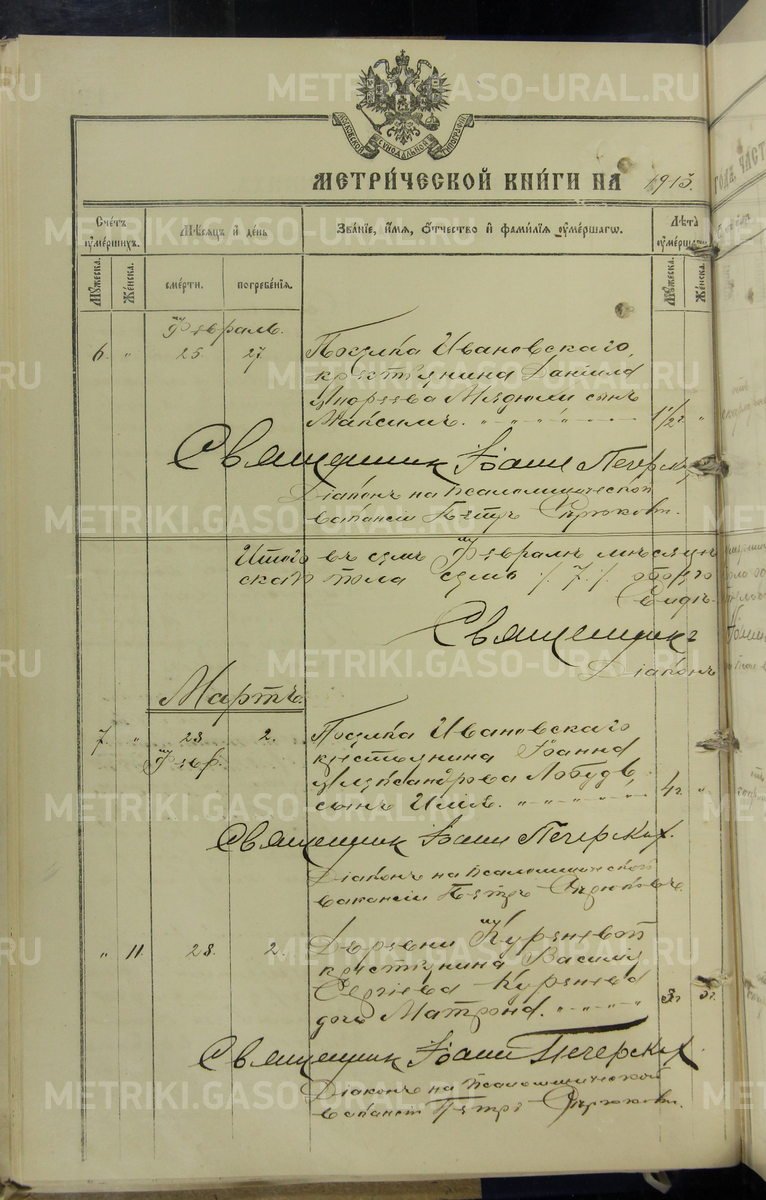 МОСКОВСКОЙ СѴНОДАЛЬНОЙ ТИПОГРАФІИ
МЕТРИЧЕСКОЙ КНИГИ НА 1915.
Счетъ умершихъ.
Мѣсяцъ и день
Званіе, имя, отчество и фамилія умершаго.
Лѣта умершаго
Мужеска.
Женска.
смерти.
погребенія.
Мужеска.
Женска.
Февраль.
6. " 25 27 Поселка Ивановскаго,
крестьянина Даніила
Андреева сынъ
Максимъ. " " " " 1 1/2 г. "
Священник Іоанн Печерских
Діаконъ на псаломщической
вакансіи Петръ
Итого въ семъ Феврале месяце
семь /7/ обоего
Священникъ
Діаконъ
Мартъ.
7. " 28. 2. Поселка Ивановскаго
Февр. крестьянина Іоанна
Александрова Лобуда
сынъ Илья. " " " " " 4 г. "
Священник Іоанн Печерских.
Діаконъ на псаломщической
вакансіи Петръ
" 11. 28. 2. Деревни Куреневой
крестьянина Василия
Сергіева Куренева
дочь Матрона. " " " "
Священник Іоанн Печерских.
Діаконъ на псаломщической
вакансіи Петръ
METRIKI.GASO-URAL.RU